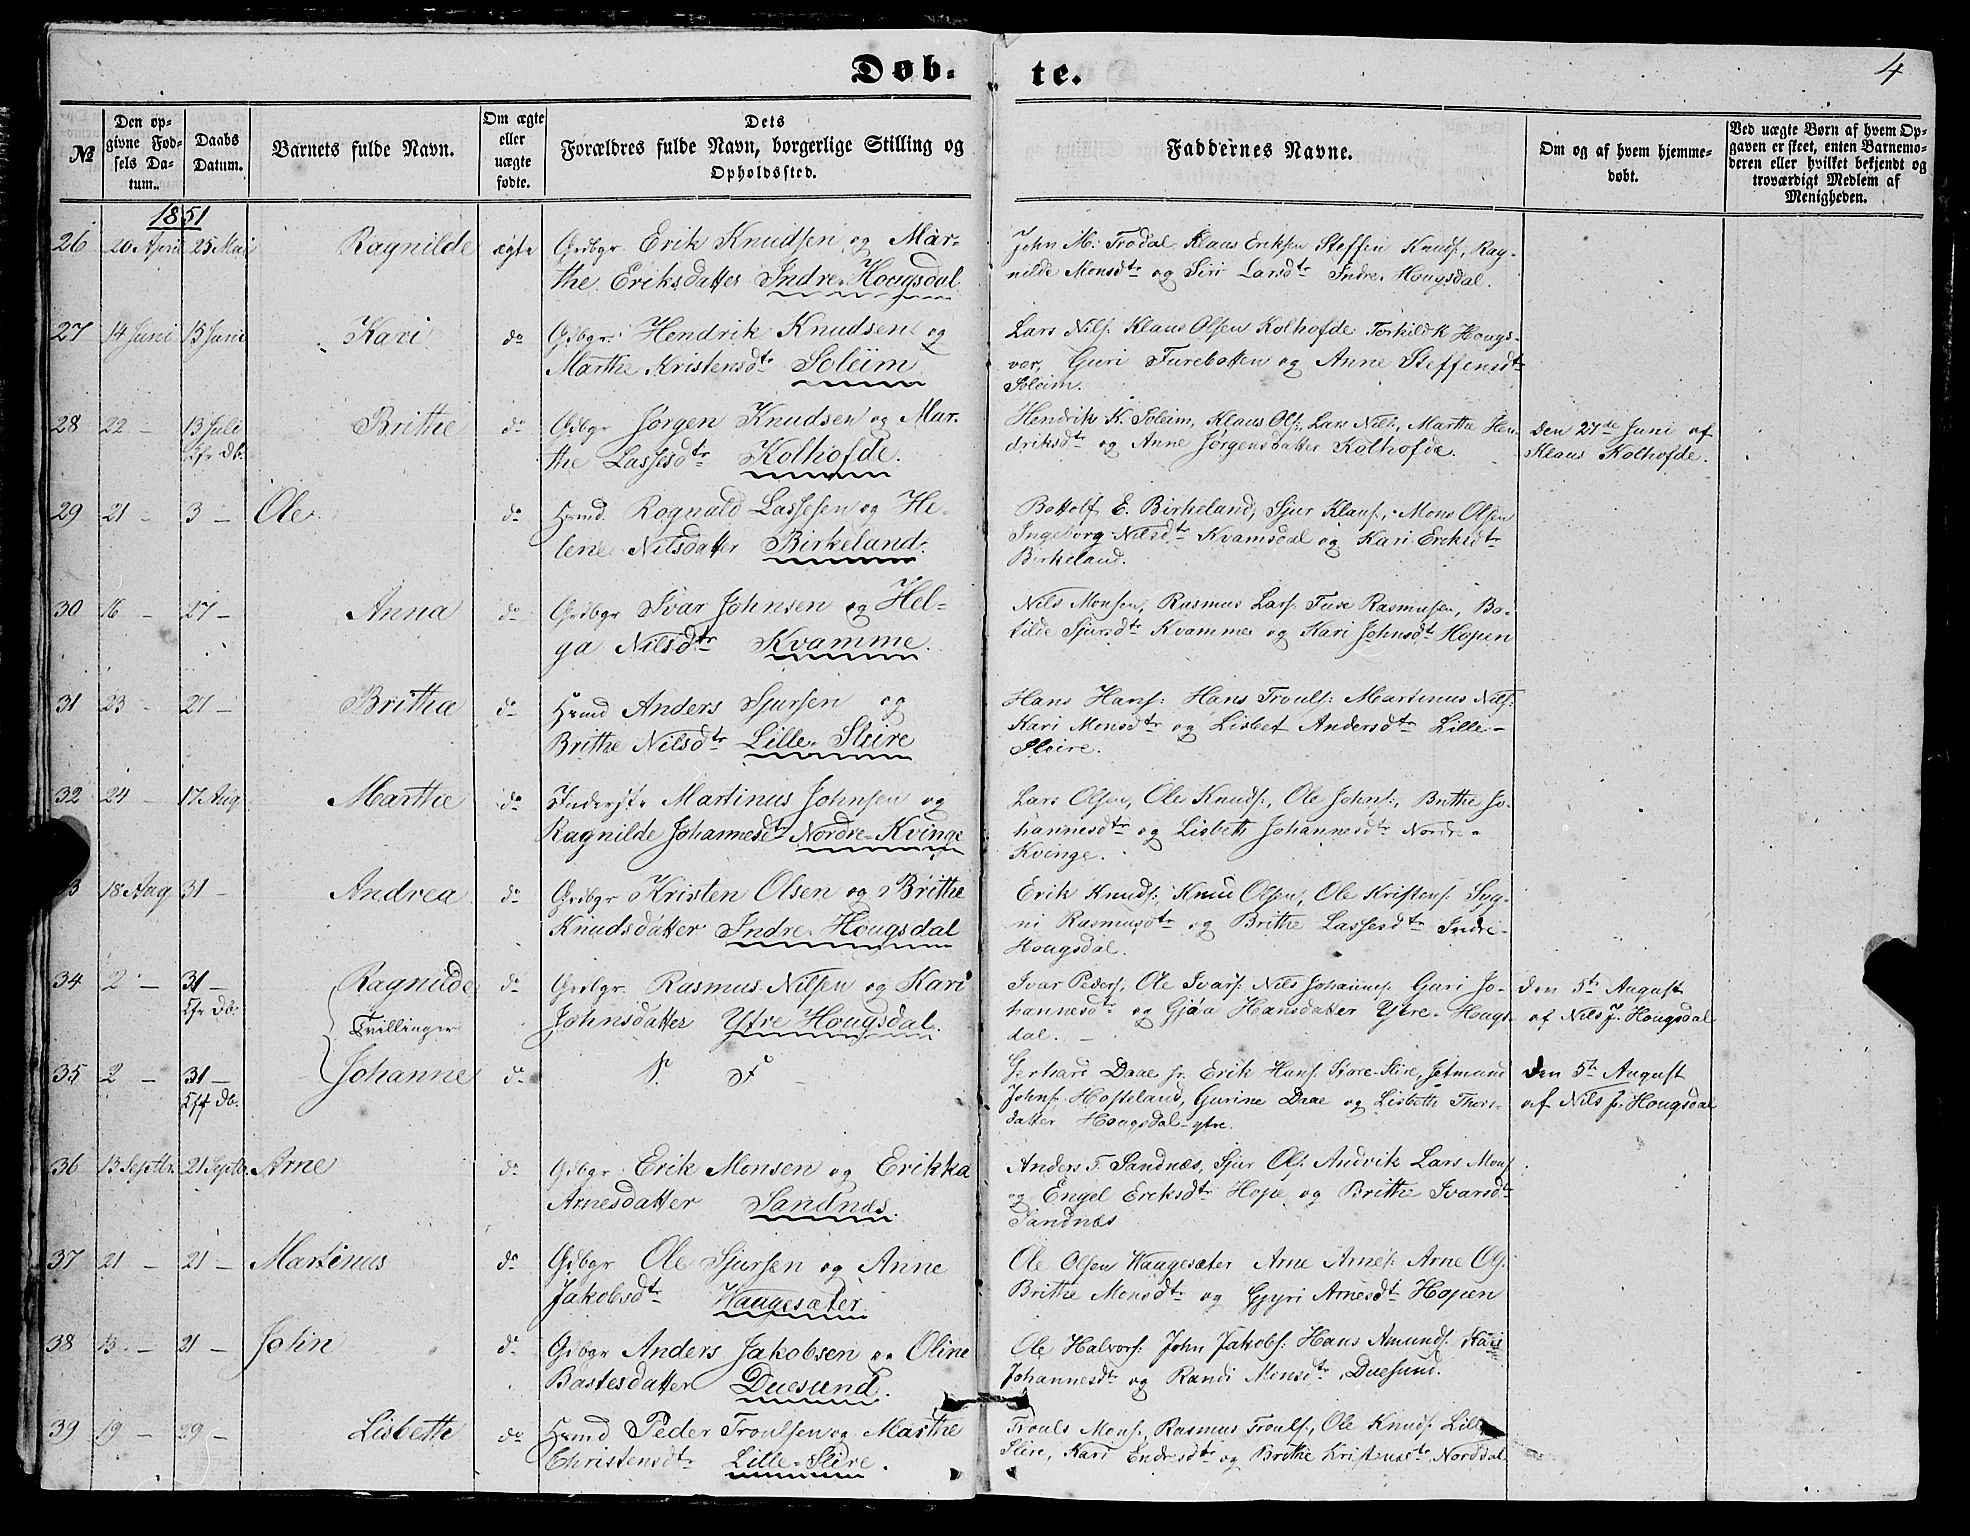 Døb-te.
4
№
Den op-
givne Fød-
sels Da-
tum.
Daabs
Datum.
Barnets fulde Navn.
Om ægte
eller
uægte
fødte.
Dets
Forældres fulde Navn, borgerlige Stilling og
Opholdssted.
Faddernes Navne.
Om og af hvem hjemme-
døbt.
Ved uægte Børn af hvem Op-
gaven er skeet, enten Barnemo-
deren eller hvilket bekjendt og
troværdigt Medlem af
Menigheden.
1851
26 20 April 25 Mai Ragnilde ægte Grdbgr Erik Knudsen og Mar-
the Eriksdatter Indre-Hougsdal
John M: Trodal Klaus Eriksen Steffen Knuds:, Rag-
nilde Monsdtr og Siri Larsdtr Indre-Hougsdal.
27 14 Juni 15 Juni Kari do Gdbgr: Hendrik Knudsen og
Marthe Kristensdtr Soleim
Lars Nils: Klaus Olsen Kolhofde Torkild K Hougs-
vær, Guri Turebotten og Anne Steffensdtr
Soleim.
28 22 - 13 Juli Brithe do Gdbgr Jørgen Knudsen og Mar-
Cfr Db.
the Lassesdtr Kolhofde.
Hendrik K. Soleim, Klaus Ols:, Lars Nils:, Marthe Hen-
driksdtr og Anne Jørgensdatter Kolhofde.
Den 27de Juni af
Klaus Kolhofde.
29 21 - 3 - Ole do Hsmd. Rognald Lassesen og He-
lene Nilsdatter Birkeland.
Bottolf E. Birkeland, Sjur Klaus:, Mons Olsen
Ingeborg Nilsdtr Kvamsdal og Kari Eriksdtr
Birkeland.
30 16 - 27 - Anna do Grdbgr Ivar Johnsen og Hel-
ga Nilsdtr Kvamme.
Nils Monsen, Rasmus Lars: Ture Rasmusen, Bo-
tilde Sjursdtr Kvamme og Kari Johnsdt Hopen
31 23 - 27 - Brithe do Hsmd Anders Sjursen og
Brithe Nilsdtr Lille-Slire
Hans Hans: Hans Trouls: Martinus Nils:
Kari Monsdtr og Lisbet Andersdtr Lille-
Sleire.
32 24 - 17 Aug Marthe do Inderste Martinus Johnsen og
Ragnilde Johannesdtr Nordre-Kvinge
Lars Olsen, Ole Knuds:, Ole Johns:, Brithe Jo-
hannesdtr og Lisbeth Johannesdtr Nordre-
Kvinge.
18 Aug 31 - Andrea do Grdbgr Kristen Olsen og Brithe
Knudsdatter Indre-Hougsdal
Erik Knuds: Knud Olsen, Ole Kristens: Syg-
ni Rasmusdtr og Brithe Lassesdtr Indre-
Hougsdal.
34 2 - 31 - Ragnilde do Grdbgr. Rasmus Nilsen og Kari
Cfr Db. Tvillinger Johnsdatter Ytre Hougsdal.
Ivar Peders, Ole Ivars: Nils Johannes: Guri Jo-
hannesdtr og Gjøa Hansdatter Ytre-Hougs-
dal.
Den 5te August
af Nils J. Hougsdal
35 2 - 31 - Johanne do
Cfr Db.
Gerhard Daae jr. Erik Hans: Store-Slire, Jetmund
Johns: Hosteland, Gurine Daae og Lisbeth Thors-
datter Hougsdal-ytre.
Den 5te August
af Nils J. Hougsdal
36 13 Septbr. 21 Septbr. Arne do Gdbgr: Erik Monsen og Erikka
Arnesdatter Sandnes.
Anders T. Sandnæs, Sjur Ols: Andvik Lars Mons:
og Engel Eriksdtr Hope og Brithe Ivarsdtr
Sandnæs
37 21 - 21 - Martinus do Gdbgr Ole Sjursen og Anne
Jakobsdtr Haugesæter.
Ole Olsen Haugesæter Arne Arnes: Arne Ols:
Brithe Monsdtr og Gjyri Arnesdtr Hopen
38 13 - 21 - John do Gdbgr Anders Jakobsen og Oline
Bastesdatter Duesund.
Ole Halvors: John Jakobs: Hans Amunds: Kari
Johannesdtr og Randi Monsdtr Duesund.
39 19 - 39 - Lisbette do Hsmd Peder Troulsen og Marthe
Christensdtr Lille-Slire.
Trouls Mons:, Rasmus Trouls:, Ole Knuds: Lille
Slire, Kari Endresdtr og Brithe Kristensdtr Norddal